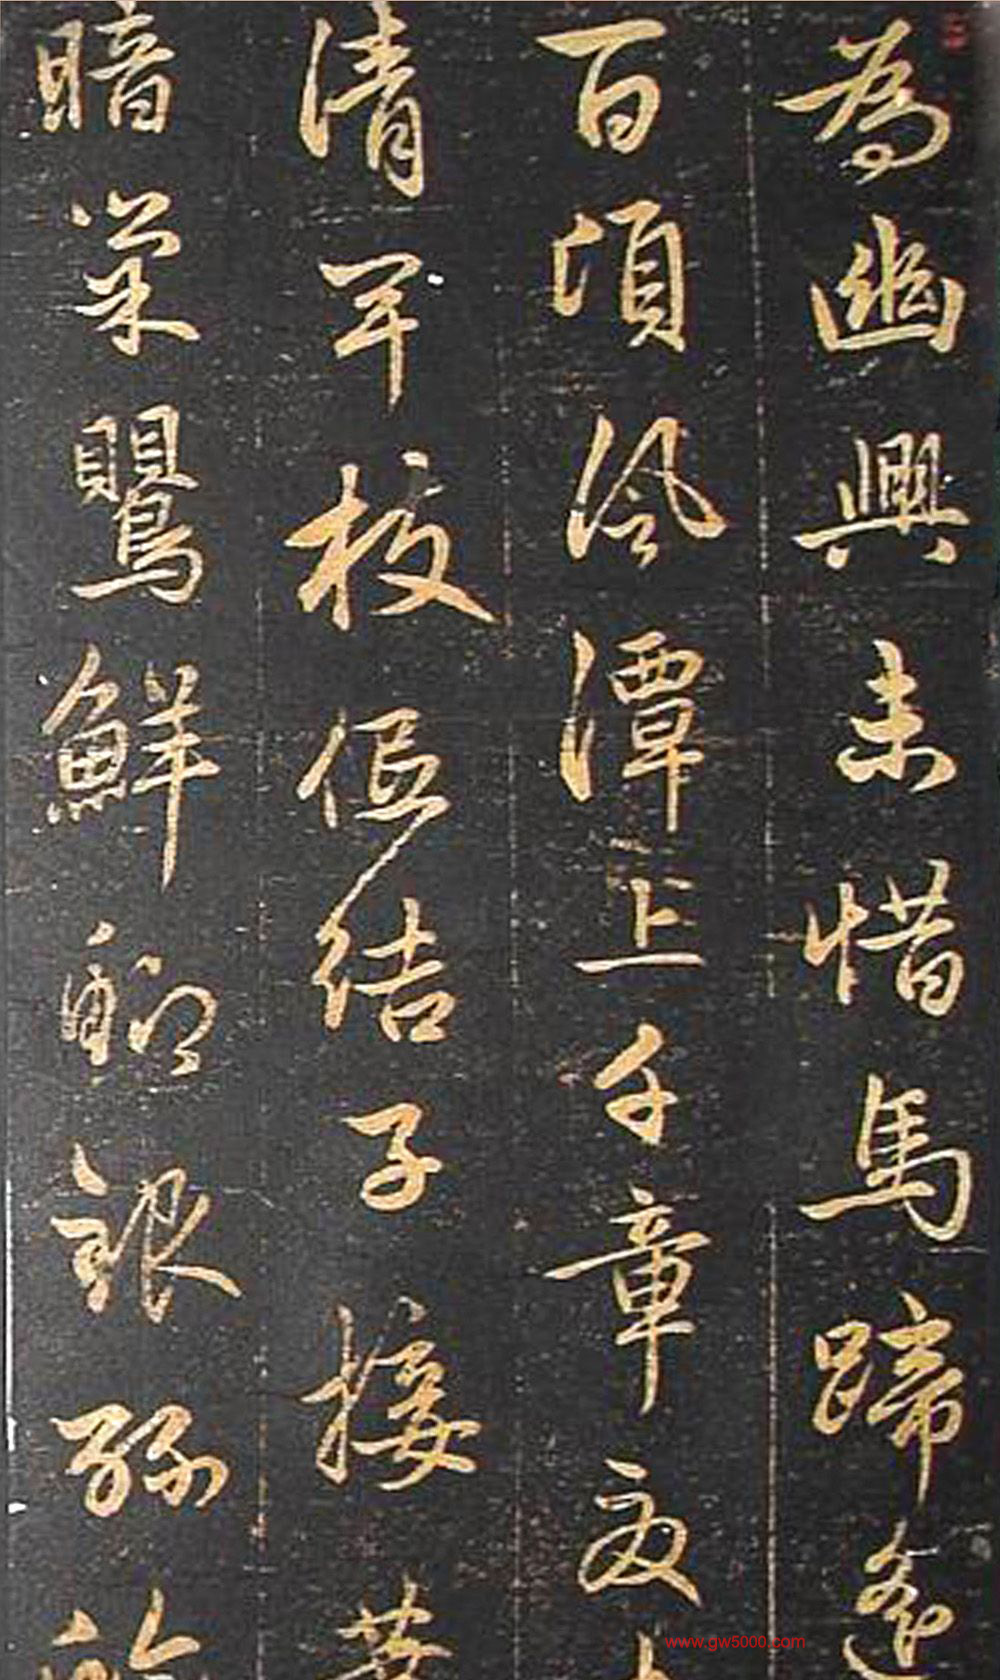 為幽興未惜馬蹄遙
百頃風潭上千章夏
清卑枝低結子接葉
暗巢鸎鮮鯽銀絲
www.gw5000.com